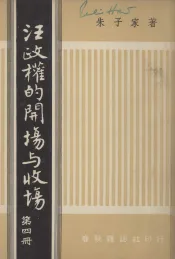 朱子家著
汪政權的開場与收場
第四冊